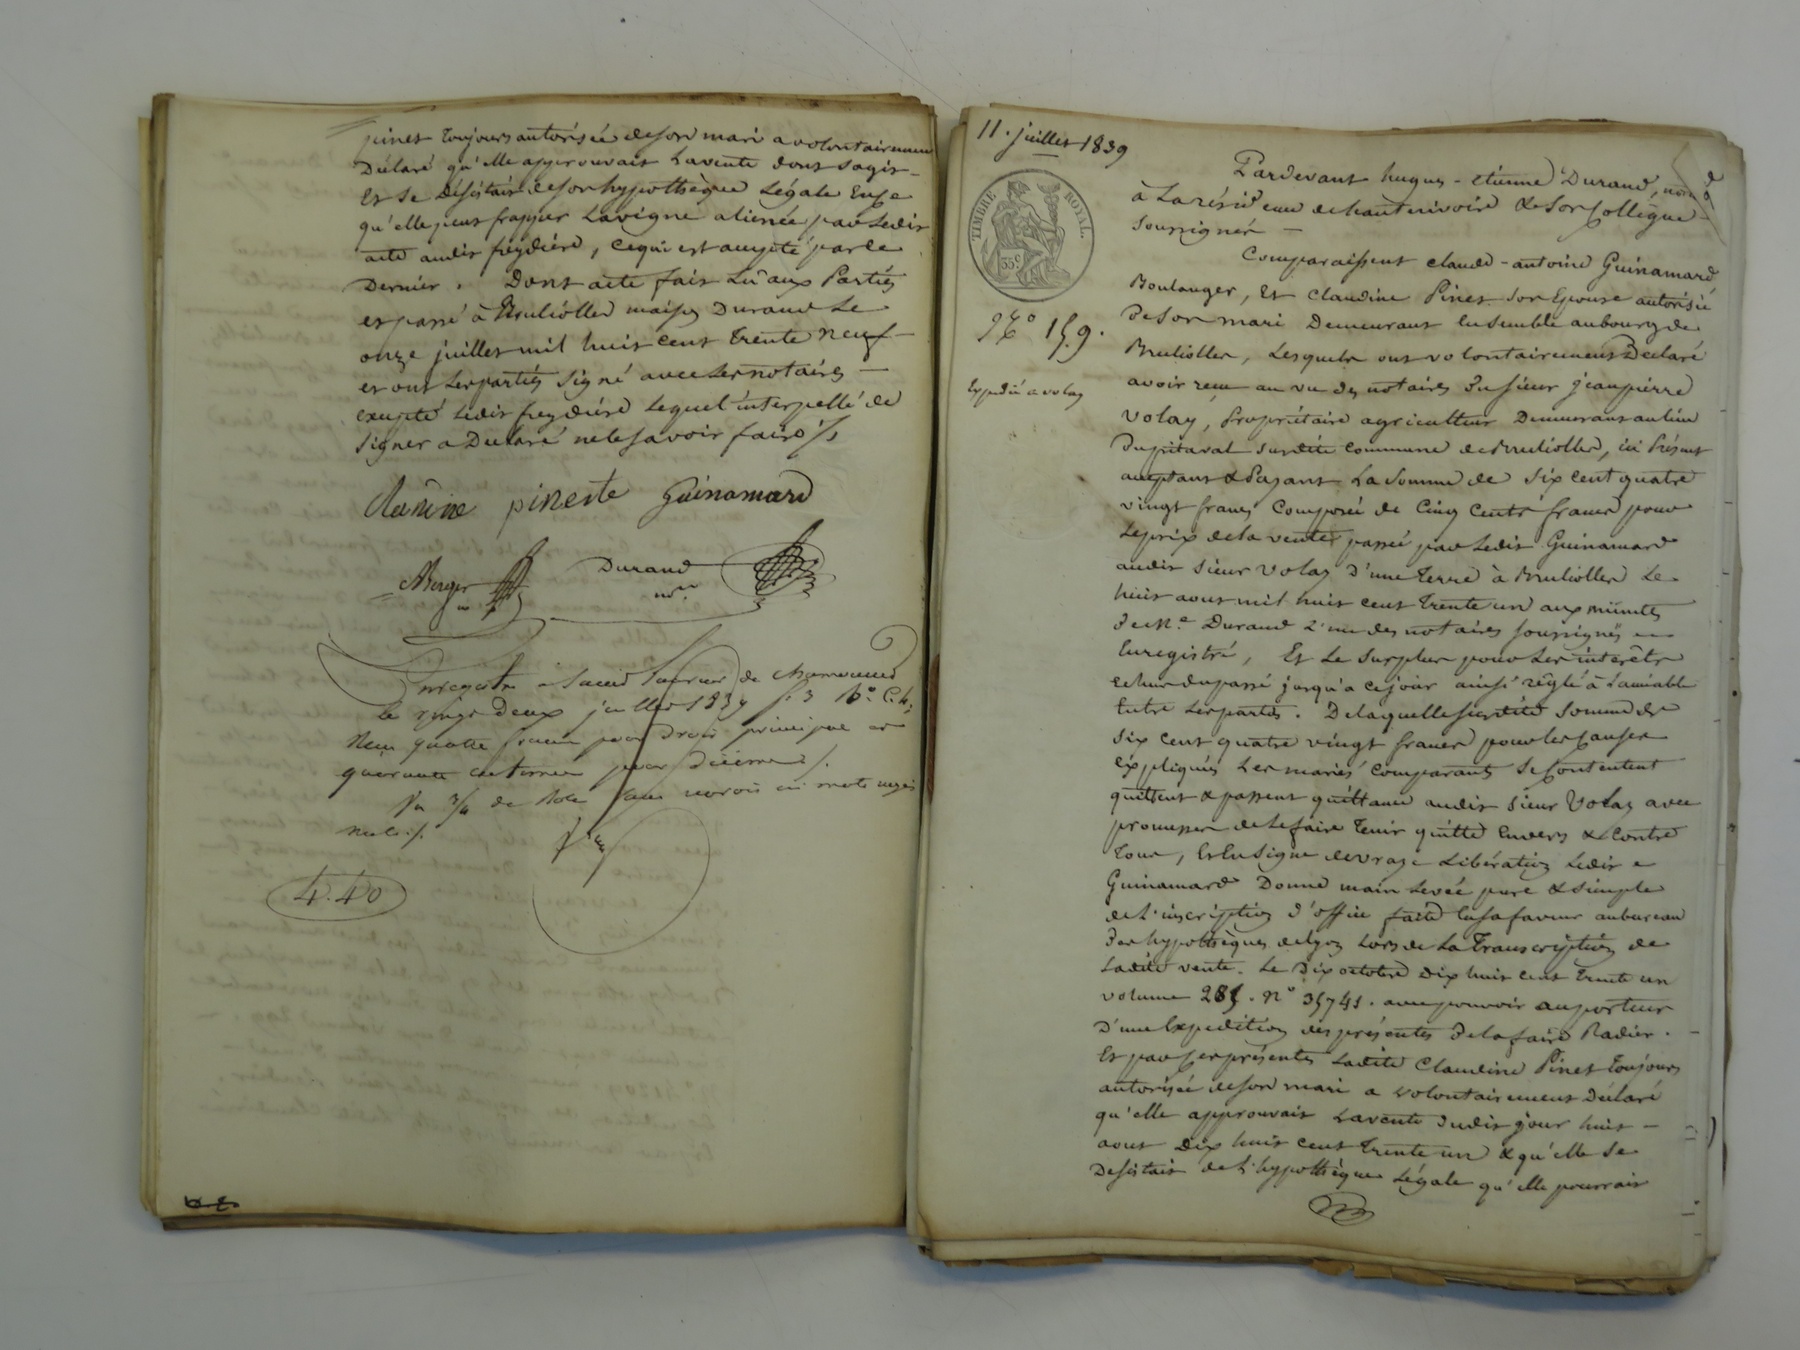 pinet toujours autorisée de son mari a volontairement
Déclaré qu'elle approuvait la vente dont s'agit –
Et se désistait de son hypothèque Légale En ce
qu'elle peut frapper la vigne alienée par ledit
acte audit freydiére, ce qui est accepté par ce
Dernier. Dont acte fait Lû aux Parties
et passé à Brulliolles maison Durand Le
onze juillet mil huit cent trente neuf –
et ont les parties signé avec les notaires –
excepté ledit freydiére lequel interpellé de
signer a Déclaré ne le savoir faire /.
Claudine pineste Guinamard
Berger Durand
nre.
Enregistré à Saint Laurent de Chamousset
le vingt deux juillet 1839 f. 3 Vo. C. 4,
Reçu quatre francs pour droit principal et
quarante centimes pour Décime /.
mots rayés
nuls /.
4.40
11. juillet 1839
Pardevant hugues-etienne Durand, nore
à La résidence de hauterivoire & son Collègue
soussignés –
TIMBRE ROYAL.
35c
Comparaissent claude-antoine Guinamard
Boulanger, Et Claudine Pinet son Epouse autorisée
No 159.
De son mari Demeurant Ensemble au bourg de
Brulliolles, Lesquels ont volontairement Déclaré
Expédié a volay
avoir reçu au vu des notaires Du sieur jean pierre
Volay, Propriétaire agriculteur Demeurant au lieu
Du pitaval susdite Commune de Brulliolles, ici Présent
acceptant & Payant La Somme de Six cent quatre
vingt francs Composée de Cinq Cents francs pour
Le prix de la vente passée par ledit Guinamard
audit sieur Volay D'une terre à Brulliolles Le
huit aout mil huit cent trente un aux minutes
De Me. Durand L'un des notaires soussignés –
Enregistré, Et Le surplus pour Les intérêts
echus du passé jusqu'a ce jour ainsi réglé à L'amiable
Entre les parties. De laquelle susdite somme de
six cent quatre vingt francs pour les Causes
expliquées Les mariés comparants se Contentent
quittent & passent quittance audit sieur Volay avec
promesse de le faire tenir quitte Envers & contre
tous, Et En signe de vraye Libération Ledit
Guinamard Donne main levée pure & simple
de L'inscription d'office faite En sa faveur au bureau
Des hypothèques de Lyon Lors de La transcription de
Ladite vente. Le Dix octobre dix huit cent trente un
volume 285. No 35741. avec pouvoir au porteur
D'une Expédition des présentes De la faire Radier.
Et par ces présentes Ladite Claudine Pinet toujours
autorisée de son mari a volontairement Déclaré
qu'elle approuvait La vente dudit jour huit –
aout Dix huit cent trente un & qu'elle se
Désistait de L'hypothèque Légale qu'elle pourrait